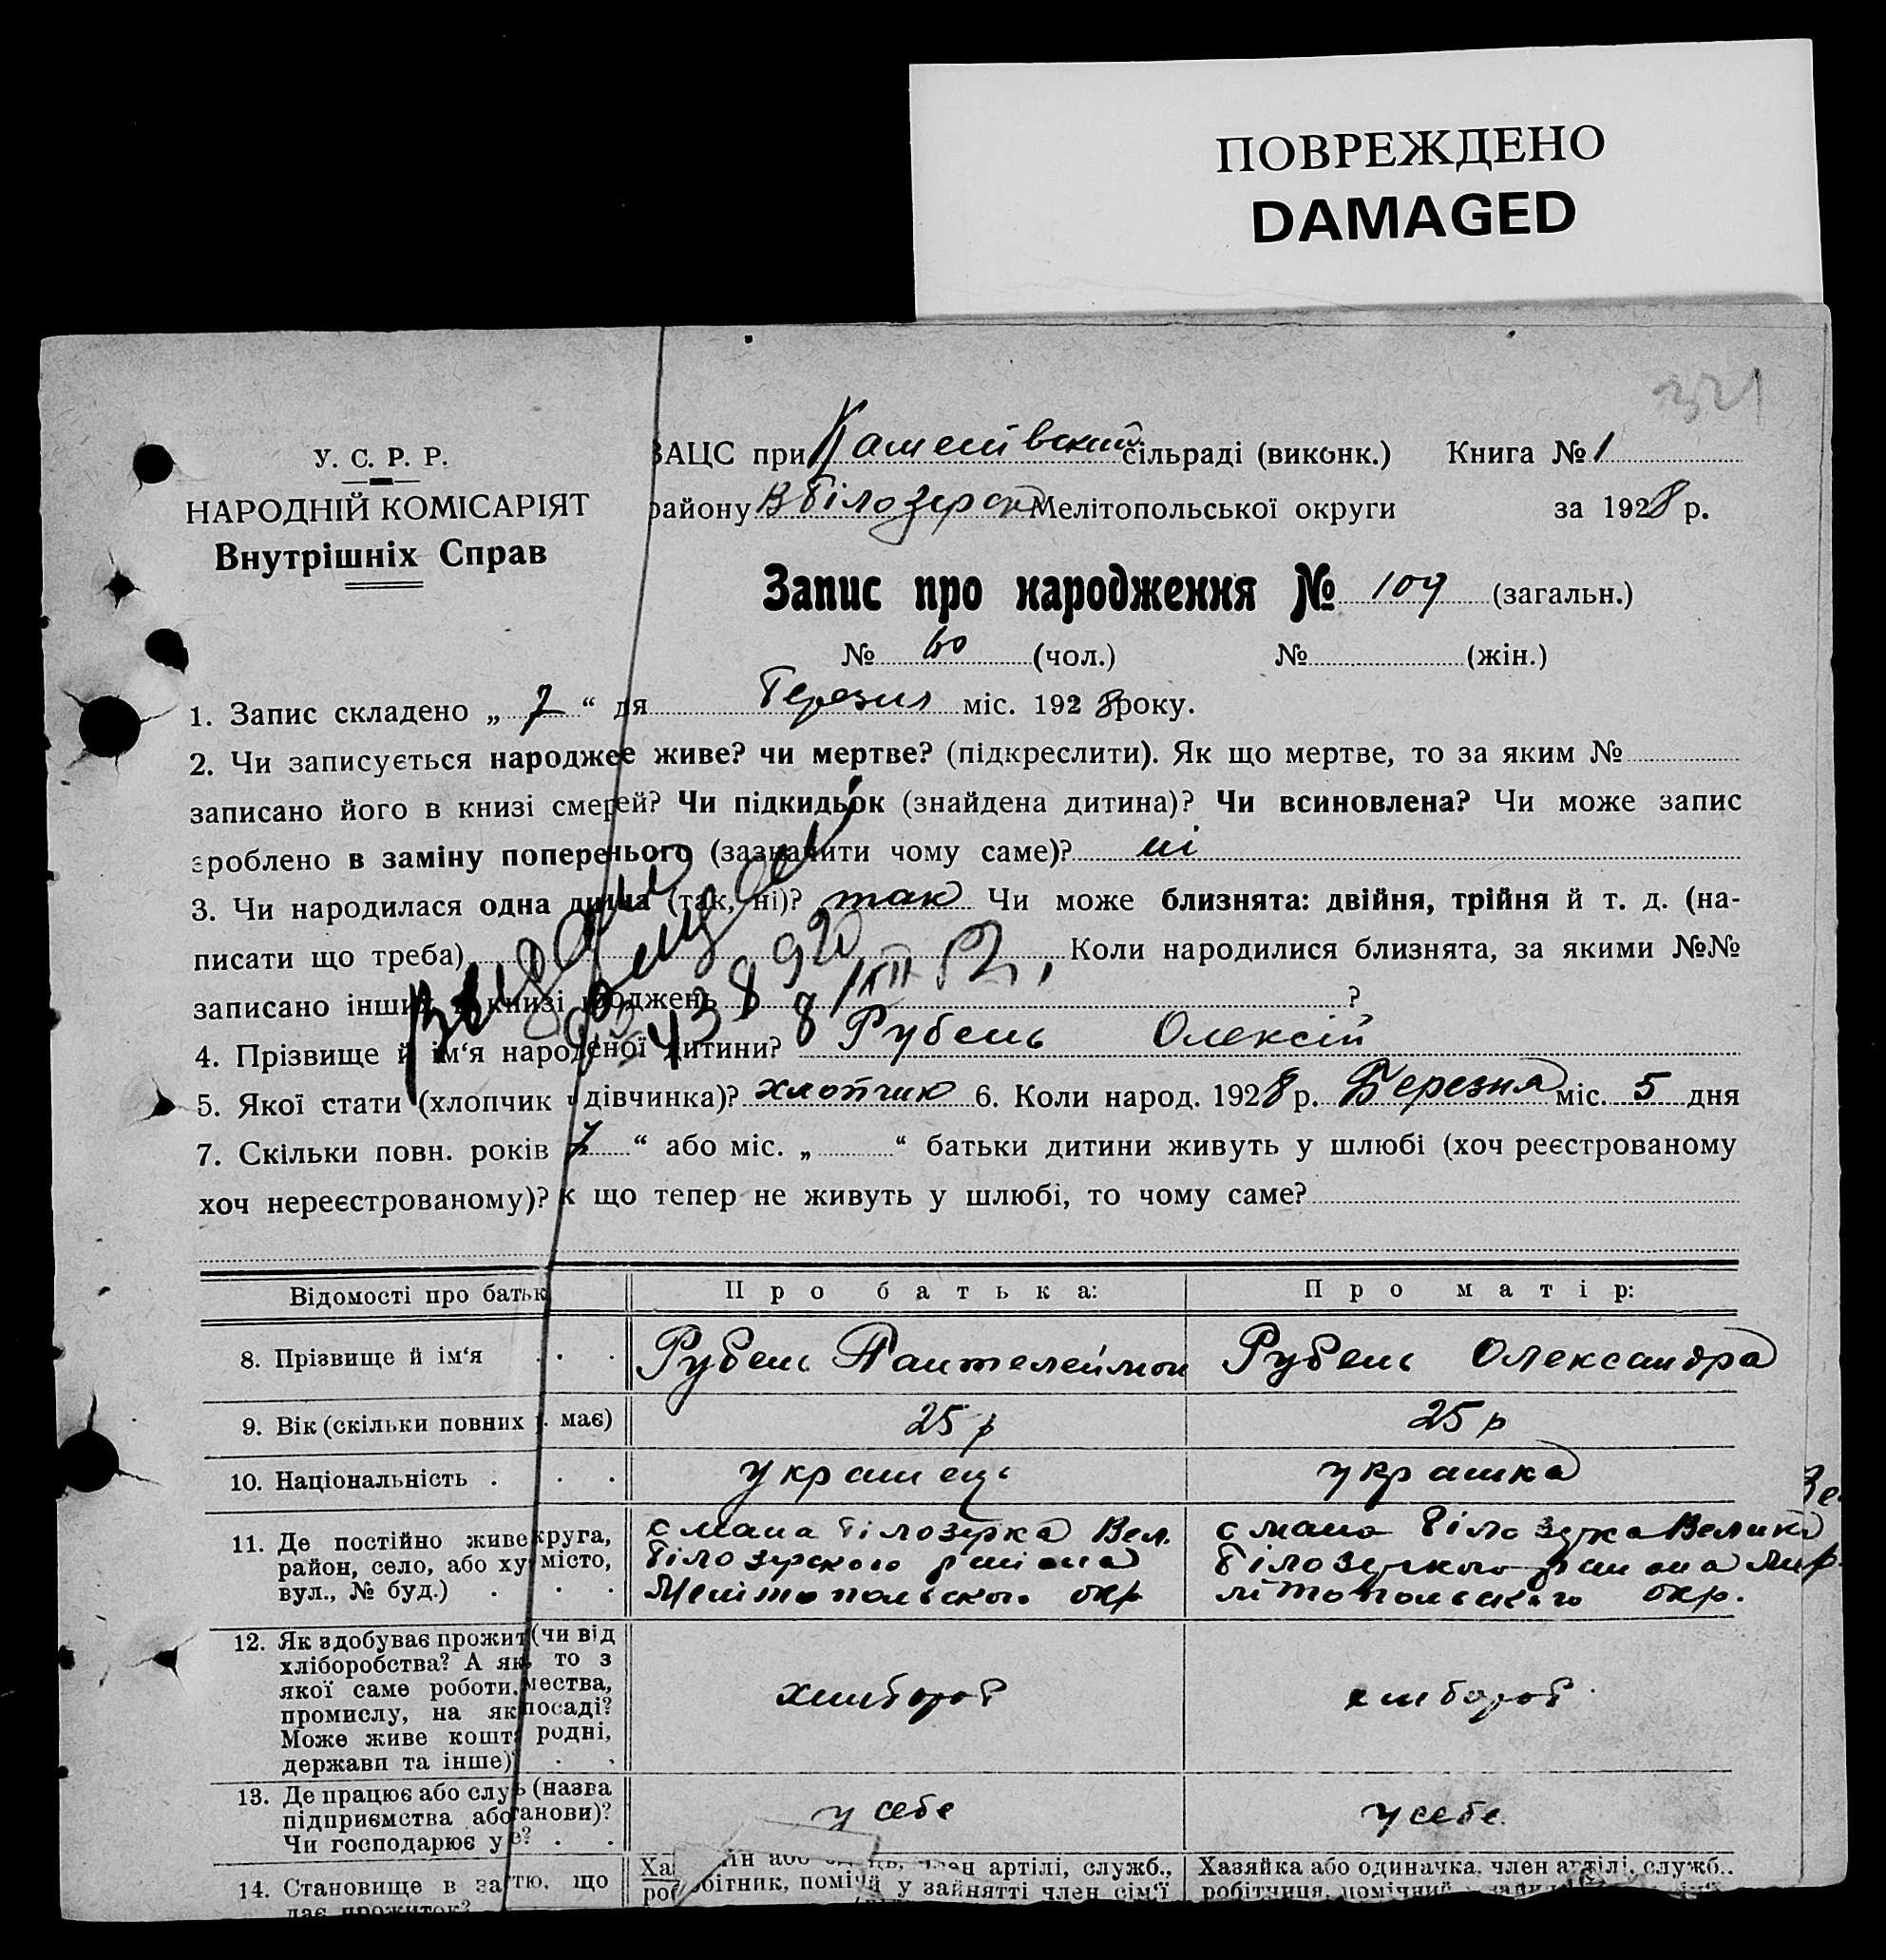 ПОВРЕЖДЕНО
DAMAGED
321
У. С. Р. Р.
НАРОДНІЙ КОМІСАРІЯТ
Внутрішніх Справ
ЗАЦС при сільраді (виконк.) Книга № 1
району В Білозерск Мелітопольської округи за 1928 р.
Запис про народження № 109 (загальн.)
№ 60 (чол.) № (жін.)
1. Запис складено „ 7 “ дя Березня міс. 1928 року.
2. Чи записується народжее живе? чи мертве? (підкреслити). Як що мертве, то за яким №
записано його в книзі смерей? Чи підкидьок (знайдена дитина)? Чи всиновлена? Чи може запис
зроблено в заміну поперенього (зазначити чому саме)? ні
3. Чи народилася одна дина (так, ні)? так Чи може близнята: двійня, трійня й т. д. (на-
писати що треба) Коли народилися близнята, за якими №№
записано інших книзі роджень ?
4. Прізвище й ім‘я народеної дитини? Рубець Олексій
5. Якої статі (хлопчик дівчинка)? хлопчик 6. Коли народ. 1928 р. Березня міс. 5 дня
7. Скільки повн. років 7 “ або міс. „ “ батьки дитини живуть у шлюбі (хоч реєстрованому
хоч нереєстрованому)? к що тепер не живуть у шлюбі, то чому саме?
Відомості про батьк Про батька: Про матір:
8. Прізвище й ім‘я Рубець Пантелеймон Рубець Олександра
9. Вік (скільки повних р. має) 25 р 25 р
10. Національність українець українка
11. Де постійно живе круга,
район, село, або ху місто,
вул., № буд.)
с мала Білозерка Вел.
Білозерского раіона
Мелітопольского окр
с мала Білозерка Велико
Білозерского раіона Ме
літопольского окр.
12. Як здобуває прожит (чи від
хліборобства? А як, то з
якої саме роботи, мества,
промислу, на як посаді?
Може живе кошт родні,
держави та інше)
хлібороб
хлібороб
13. Де працює або слу (назва
підприємства або танови)?
Чи господарює у е?
у себе
у себе
14. Становище в за тю, що
дає прожиток?
Ха ін або ць, член артілі, служб.,
роб обітник, помічн у зайнятті член сім‘ї
Хазяйка або одиначка, член артілі, служб.,
робітниця, помічний